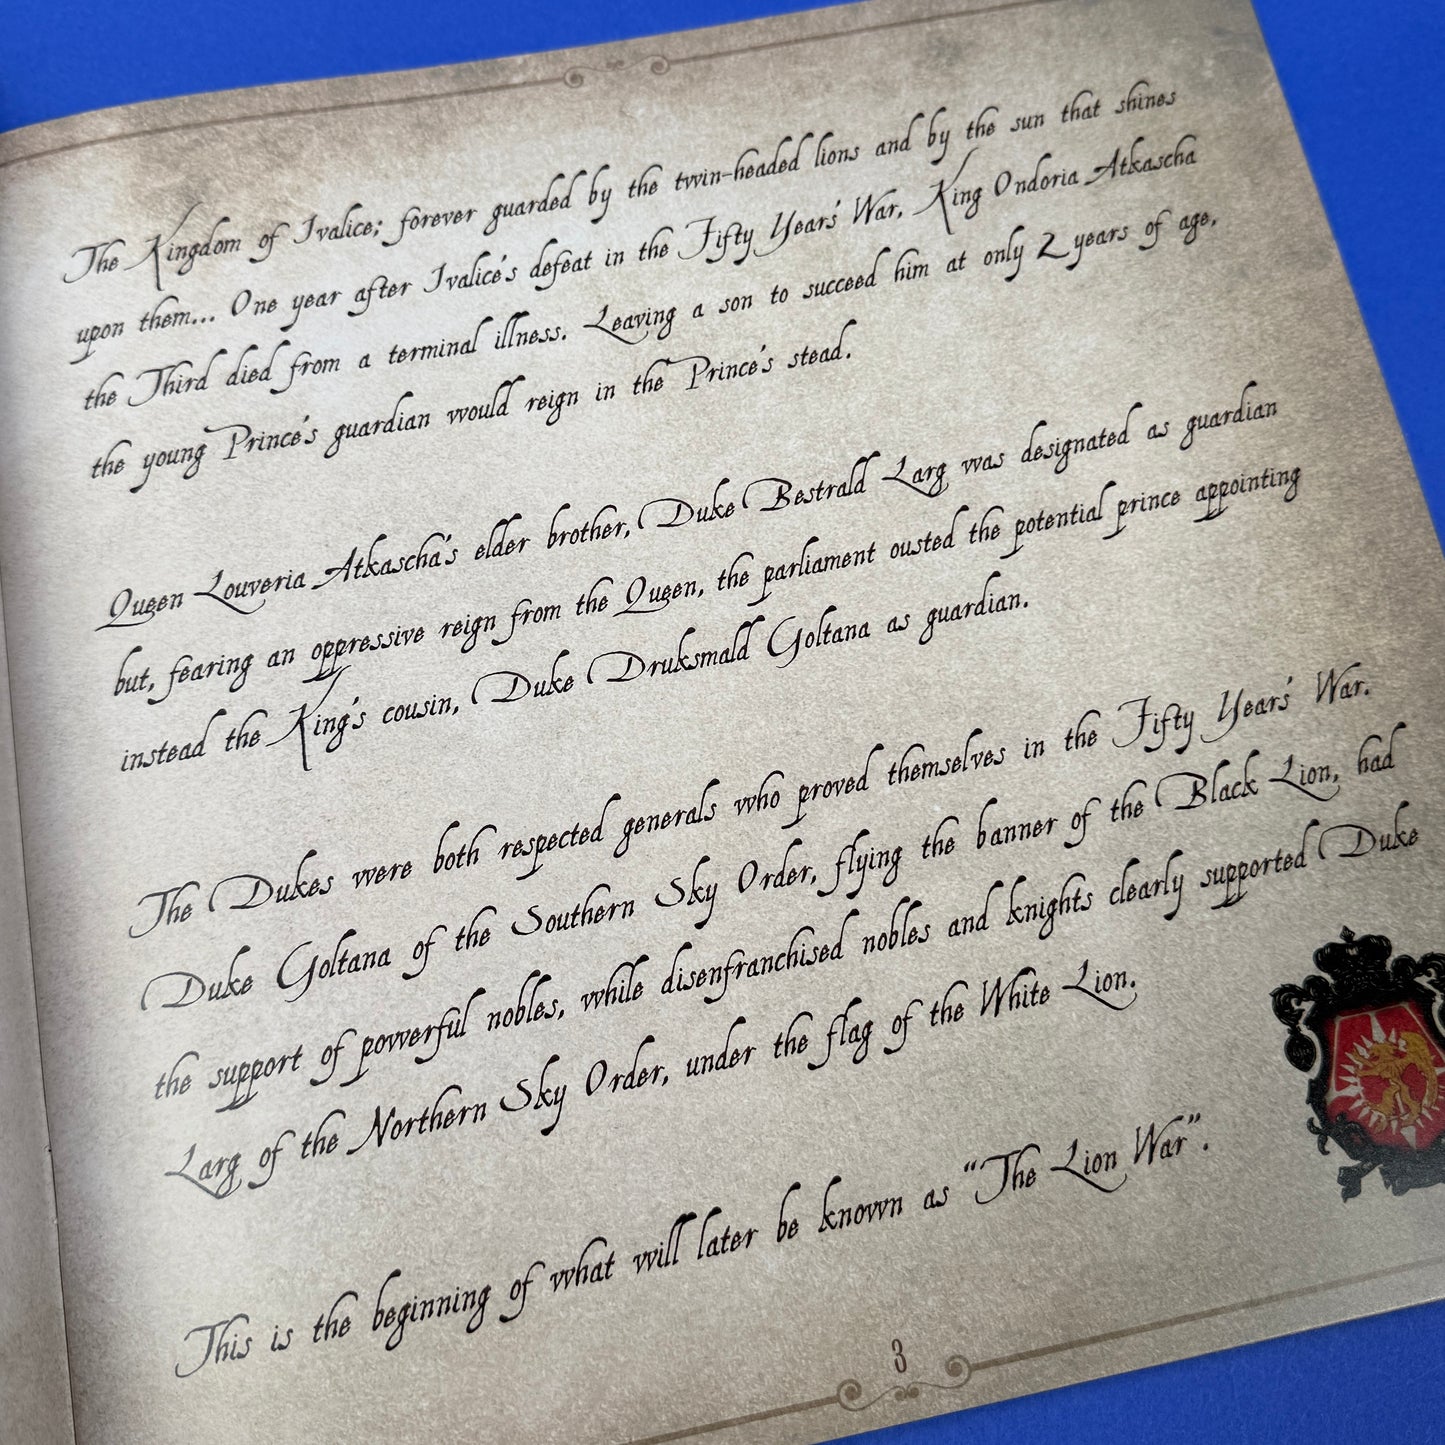 The Kingdom of Ivalice; forever guarded by the twin-headed lions and by the sun that shines
upon them... One year after Ivalice's defeat in the Fifty Years' War, King Ondoria Atkascha
the Third died from a terminal illness. Leaving a son to succeed him at only 2 years of age,
the young Prince's guardian would reign in the Prince's stead.
Queen Louveria Atkascha's elder brother, Duke Bestrald Larg was designated as guardian
but, fearing an oppressive reign from the Queen, the parliament ousted the potential prince appointing
instead the King's cousin, Duke Druksmald Goltana as guardian.
The Dukes were both respected generals who proved themselves in the Fifty Years' War.
Duke Goltana of the Southern Sky Order, flying the banner of the Black Lion, had
the support of powerful nobles, while disenfranchised nobles and knights clearly supported Duke
Larg of the Northern Sky Order, under the flag of the White Lion.
This is the beginning of what will later be known as "The Lion War".
3